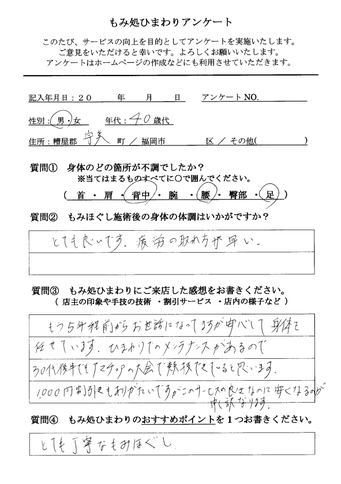 もみ処ひまわりアンケート
このたび、サービスの向上を目的としてアンケートを実施いたします。
ご意見をいただけると幸いです。よろしくお願いいたします。
アンケートはホームページの作成などにも利用させていただきます。
記入年月日：２０　　年　　月　　日　　アンケートNO.
性別：男・女　　年代：40歳代
住所：糟屋郡 宇美 町／福岡市　　　区／その他（　　　）
質問① 身体のどの箇所が不調でしたか？
※当てはまるものすべてに○で囲んでください。
（ 首 ・ 肩 ・ 背中 ・ 腕 ・ 腰 ・ 臀部 ・ 足 ）
質問② もみほぐし施術後の身体の体調はいかがですか？
とても良いです。疲労の取れ方が早い。
質問③ もみ処ひまわりにご来店した感想をお書きください。
（ 店主の印象や手技の技術 ・割引サービス ・店内の様子など ）
もう5年程前からお世話になってますが安心して身体を
任せています。ひまわりでのメンテナンスがあるので
30代後半でも の大会で 思います。
1,000円割引もありがたいですがこのサービスの良さなのに安くなるのが
申し訳なります。
質問④ もみ処ひまわりのおすすめポイントを１つお書きください。
とても丁寧なもみほぐし